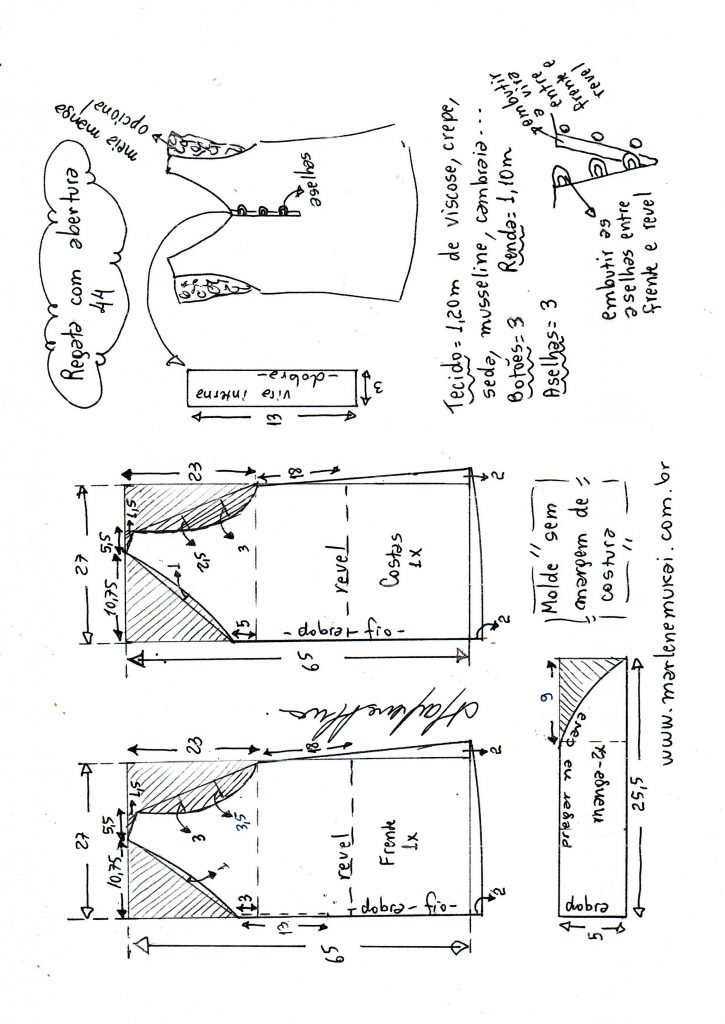 Regata com abertura
44
meia manga
opcional
aselhas
vira interna
-dobra-
13
3
Tecido= 1,20m de viscose, crepe,
seda, musseline, cambraia...
Botões= 3 Renda= 1,10m
Aselhas= 3
embutir
a vira
entre
frente e
revel
embutir as
aselhas entre
frente e revel
27
10,75
5,5
1,5
23
1
3
3,5
3
13
18
65
revel
Frente
1x
-dobra-fio-
2
2
27
10,75
5,5
1,5
23
1
2,5
3
5
18
65
revel
Costas
1x
-dobra-fio-
2
2
9
pregar na cava
manga-2x
dobra
5
25,5
"Molde sem
margem de
costura"
www.marlenemukai.com.br